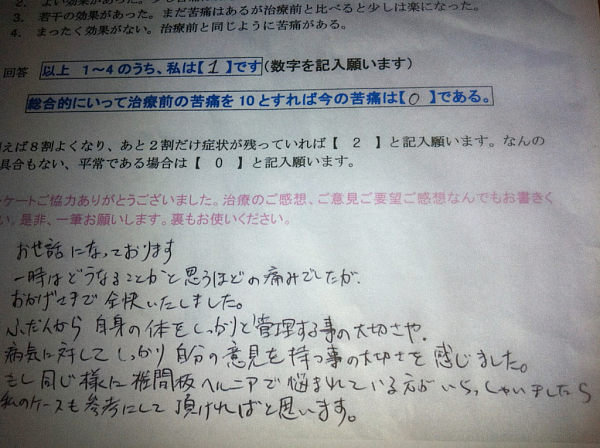 2. よい効果があった。
3. 若干の効果があった。まだ苦痛はあるが治療前と比べると少しは楽になった。
4. まったく効果がない。治療前と同じように苦痛がある。
回答 以上 1~4のうち、私は【 1 】です(数字を記入願います)
総合的にいって治療前の苦痛を10とすれば今の苦痛は【 0 】である。
えば8割よくなり、あと2割だけ症状が残っていれば【 2 】と記入願います。なんの
具合もない、平常である場合は【 0 】と記入願います。
ケートご協力ありがとうございました。治療のご感想、ご意見ご要望ご感想なんでもお書きく
い。是非、一筆お願いします。裏もお使いください。
お世話になっております
一時はどうなることかと思うほどの痛みでしたが、
おかげさまで全快いたしました。
ふだんから自身の体をしっかりと管理する事の大切さや、
病気に対してしっかり自分の意見を持つ事の大切さを感じました。
もし同じ様に椎間板ヘルニアで悩まれている方がいらっしゃいましたら
私のケースも参考にして頂ければと思います。